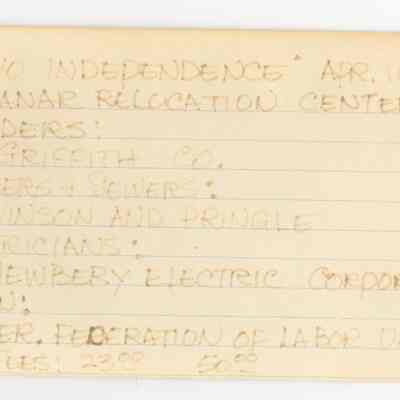 INDEPENDENCE" APR. 1
ANAR RELOCATION CENTE
DERS:
GRIFFITH CO.
ERS + SEWERS:
VINSON AND PRINGLE
RICIANS:
NEWBERY ELECTRIC CORPOR
N:
ER. FEDERATION OF LABOR
LES: 23.00 50.00